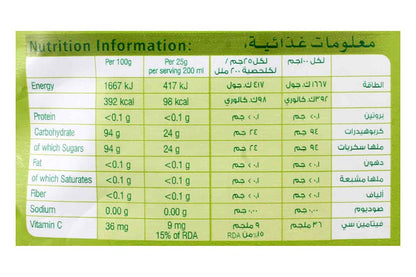 Nutrition Information: معلومات غذائية:
Per 100g Per 25g per serving 200 ml لكل ٢٥جم / لكلحصية ٢٠٠ ملل لكل ١٠٠جم
Energy 1667 kJ 417 kJ ٤١٧ ك. جول ١٦٦٧ ك. جول الطاقة
392 kcal 98 kcal ٩٨ك. كالوري ٣٩٢ك. كالوري
Protein <0.1 g <0.1 g ٠,١> جم ٠,١> جم بروتين
Carbohydrate 94 g 24 g ٢٤ جم ٩٤ جم كربوهيدرات
of which Sugars 94 g 24 g ٢٤ جم ٩٤ جم منها سكريات
Fat <0.1 g <0.1 g ٠,١> جم ٠,١> جم دهون
of which Saturates <0.1 g <0.1 g ٠,١> جم ٠,١> جم منها مشبعة
Fiber <0.1 g <0.1 g ٠,١> جم ٠,١> جم ألياف
Sodium 0.00 g 0.00 g ٠,٠٠ جم ٠,٠٠ جم صوديوم
Vitamin C 36 mg 9 mg ٩ ملجم ٣٦ ملجم فيتامين سي
15% of RDA ١٥٪ من RDA